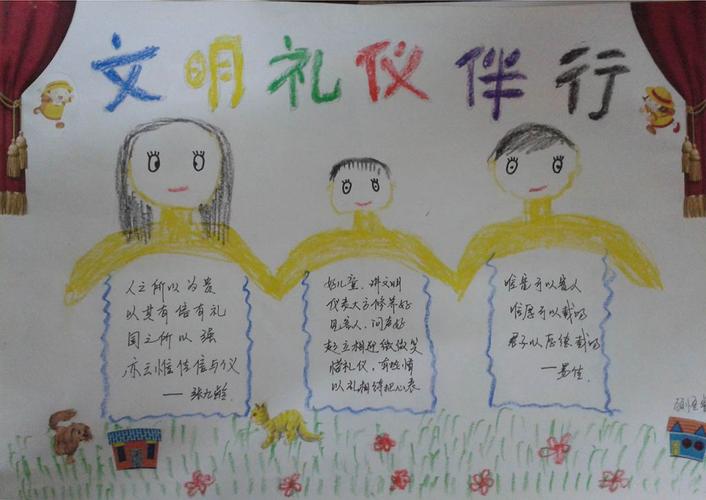 文明礼仪伴行
人之所以为贵
以其有信有礼
国之所以强
亦云惟佳信与仪
——张九龄
好儿童,讲文明
仪表大方修养好
见客人,问声好
起立相迎微微笑
礼仪,有热情
以礼相待把心表
唯宽可以容人
唯厚可以载物
君子以厚德载物